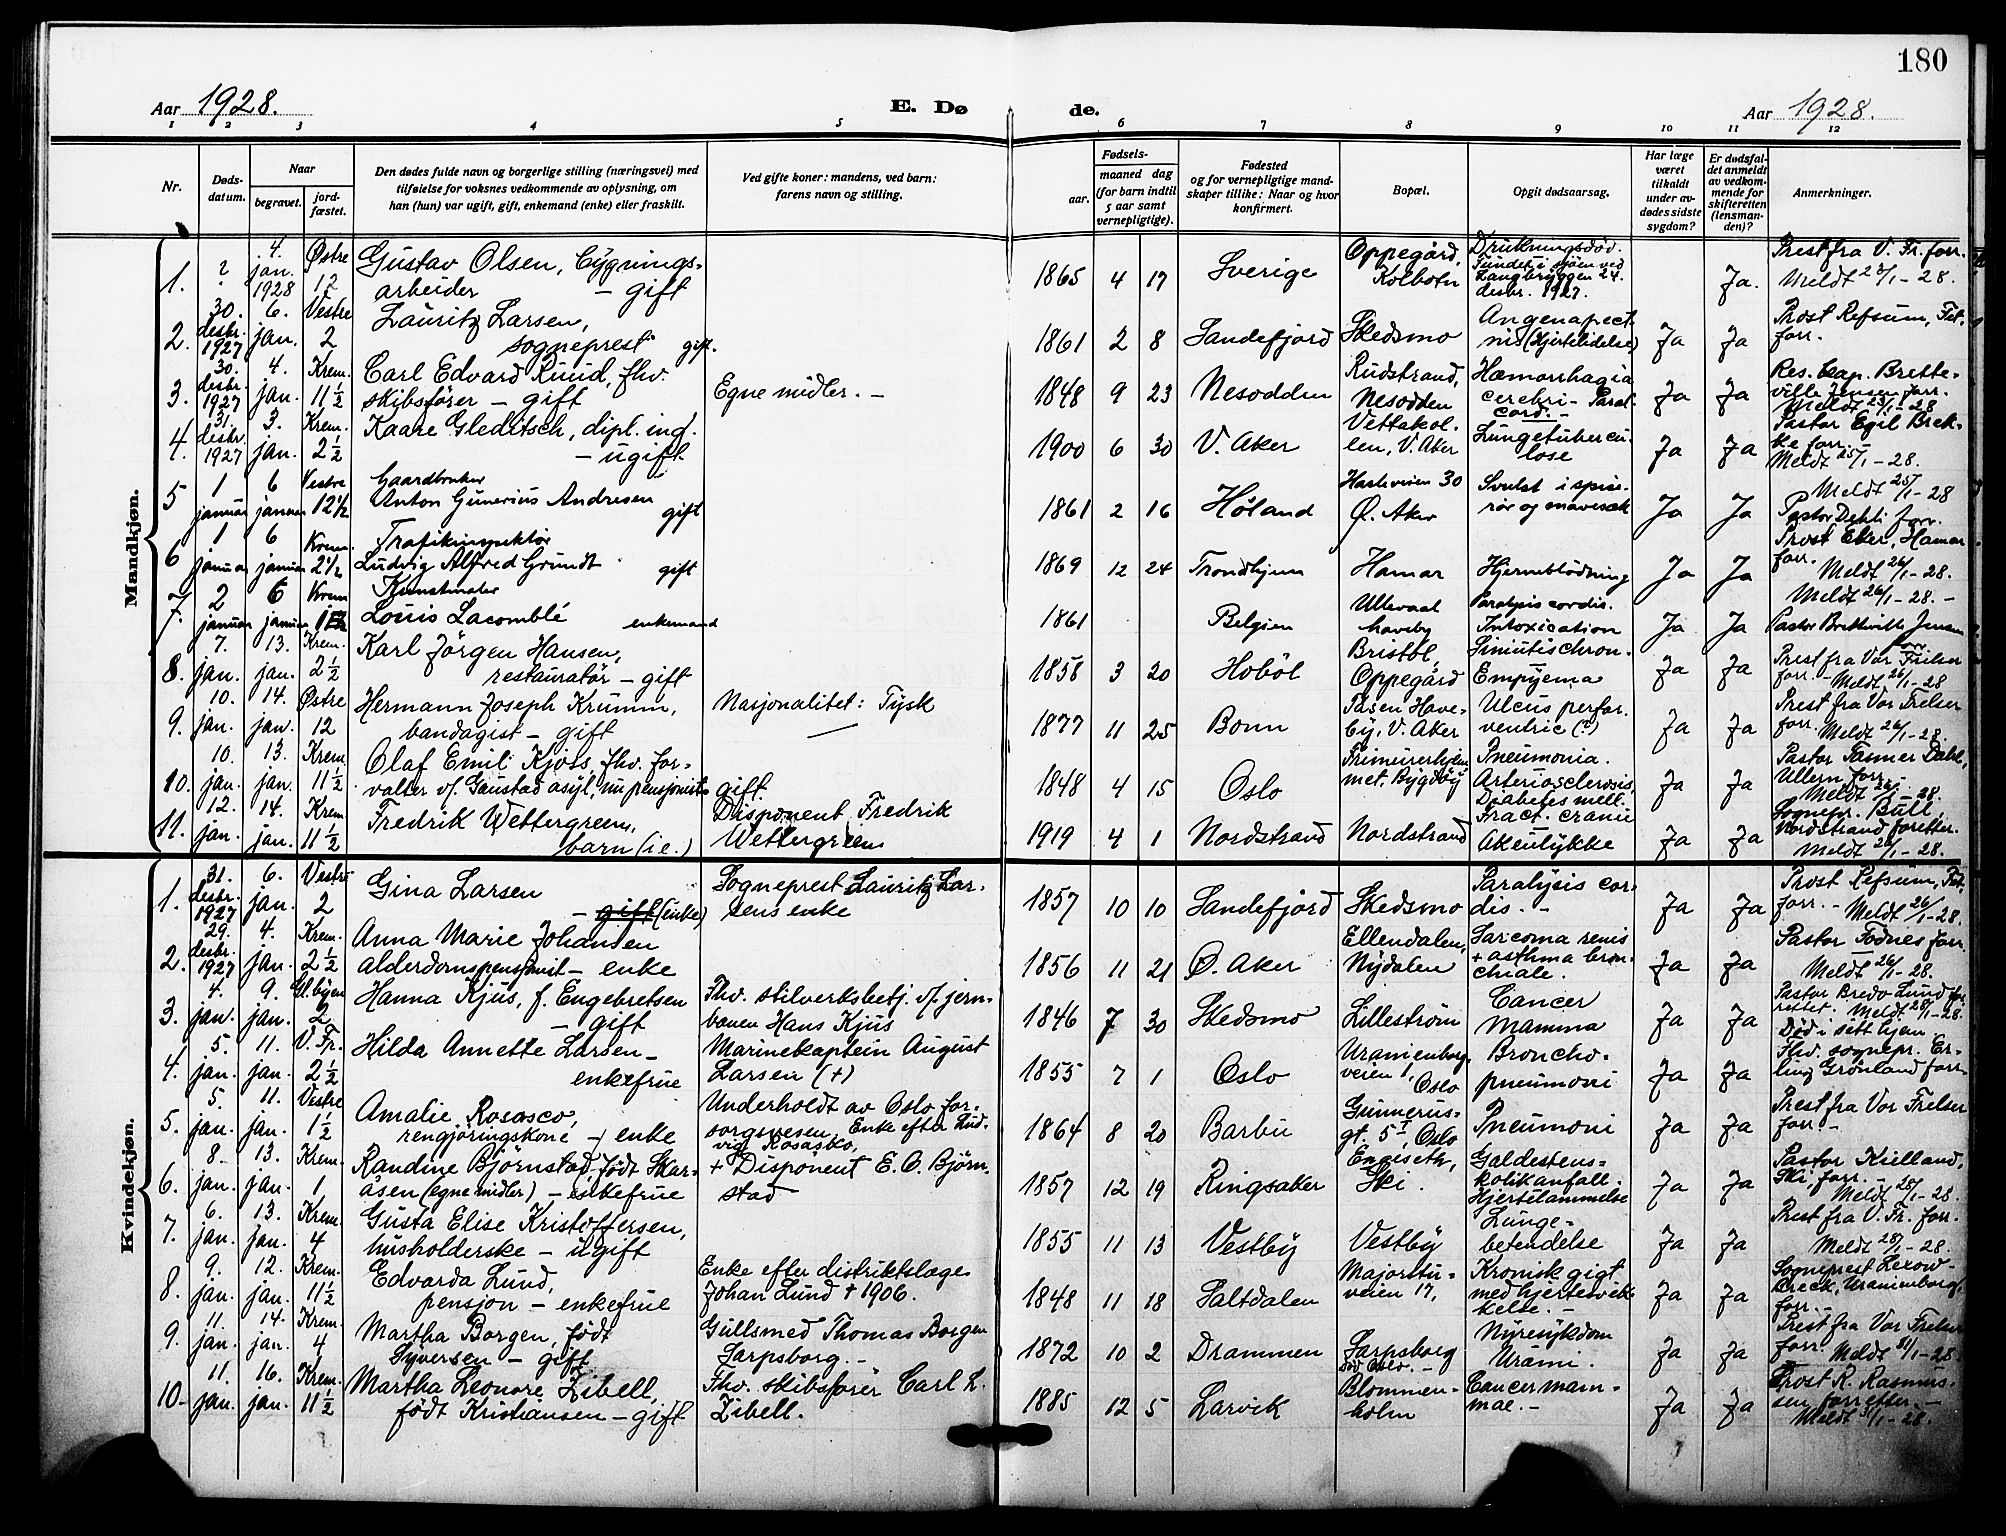 180
Aar 1928.
E. Døde.
Aar 1928.
1 2 3 4 5 6 7 8 9 10 11 12
Nr.
Døds-
datum.
Naar
begravet.
jord-
fæstet.
Den dødes fulde navn og borgerlige stilling (næringsvei) med
tilføielse for voksnes vedkommende av oplysning, om
han (hun) var ugift, gift, enkemand (enke) eller fraskilt.
Ved gifte koner: mandens, ved barn:
farens navn og stilling.
Fødsels-
aar.
maaned dag
(for barn indtil
5 aar samt
vernepligtige).
Fødested
og for vernepligtige mand-
skaper tillike: Naar og hvor
konfirmert.
Bopæl.
Opgit dødsaarsag.
Har læge
været
tilkaldt
under av-
dødes sidste
sygdom?
Er dødsfal-
det anmeldt
av vedkom-
mende for
skifteretten
(lensman-
den)?
Anmerkninger.
Mandkjøn.
1. ? 4. jan. 1928 Østre 12 Gustav Olsen, bygnings-
arbeider – gift 1865 4 17 Sverige Oppegård, Kolbotn Drukningsdød. Fundet i sjøen ved Langbryggen 24. desbr. 1927. Ja. Prest fra V. Fr. forr. Meldt 23/1-28.
2. 30. desbr. 1927 6. jan. Vestre 2 Lauritz Larsen,
sogneprest gift. 1861 2 8 Sandefjord Skedsmo Angina pectoris (Hjertelidelse) Ja Ja Prost Refsum, Fet. forr.
3. 30. desbr. 1927 4. jan. Krem. 11 ½ Carl Edvard Ruud, fhv.
skibsfører – gift Egne midler. – 1848 9 23 Nesodden Rudstrand, Nesodden Hæmorrhagia cerebri – Paral. cord. – Ja Ja Res. kap. Bretteville Jensen forr. Meldt 23/1-28
4. 31. desbr. 1927 3. jan. Krem. 2 ½ Kaare Gleditsch, dipl. ing.
– ugift. 1900 6 30 V. Aker Vettakollen, V. Aker Lungetuberculose Ja Ja Pastor Egil Brekke forr. Meldt 25/1-28.
5 1 januar 6 januar Vestre 12½ Gaardbruker
Anton Gunerius Andresen gift 1861 2 16 Høland Hasleveien 30 Ø. Aker Svulst i spiserør og mavesæk Ja Ja Meldt 25/1-28 Pastor Dehli forr.
6 1 januar 6 januar Krem. 2½ Trafikinspektør
Ludvig Alfred Grundt gift 1869 12 24 Trondhjem Hamar Hjerneblødning Ja Ja Prost Eker, Hamar forr. Meldt 26/1-28.
7. 2 januar 6 januar Krem Kunstmaler
Louis Lacomblé enkemand 1861 Belgien Ullevaal haveby Paralysis cordis. Intoxication Ja Ja Meldt 26/1-28. – Pastor Bretteville Jensen forr.
8. 7. jan. 13. jan. Krem. 2 ½ Karl Jörgen Hansen,
restauratør – gift 1858 3 20 Hobøl Bristol, Oppegård Sinuitis chron. Empyema Ja Ja Prest fra Vor Frelser forr. – Meldt 26/1-28
9. 10. jan. 14. jan. Østre 12 Hermann Joseph Krumm,
bandagist – gift Nasjonalitet: Tysk 1877 11 25 Bonn Tåsen Haveby, V. Aker Ulcus perfor. ventric (?) Ja Ja Prest fra Vor Frelser forr. Meldt 26/1-28.
10. 10. jan. 13. jan. Krem. 11 ½ Olaf Emil Kjøs, fhv. for-
valter v/ Gaustad asyl, nu pensjonist gift. 1848 4 15 Oslo Frimurerhjemmet, Bygdøy Pneumonia. Arteriosclerosis, Diabetes mell. Ja Ja Pastor Fasmer Dahl, Ullern forr. – Meldt 26/1-28.
11. 12. jan. 14. jan. Krem 11 ½ Fredrik Wettergreen,
barn (i e.) Disponent Fredrik Wettergreen 1919 4 1 Nordstrand Nordstrand Fract. cranii Akeulykke Ja Ja Sognepr. Bull, Nordstrand forretter. Meldt 26/1-28.
Kvindekjøn.
1. 31. desbr. 1927 6. jan. Vestre 2 Gina Larsen
– gift (enke) Sogneprest Lauritz Larsens enke 1857 10 10 Sandefjord Skedsmo Paralysis cordis. – Ja Ja Prost Refsum, Fet, forr. – Meldt 26/1-28.
2. 29. desbr. 1927 4. jan. Krem. 2 ½ Anna Marie Johansen
alderdomspensjonist – enke 1856 11 21 Ø. Aker Ellendalen, Nydalen Sarcoma renis + asthma bronchiale. Ja Ja Pastor Födnes forr. Meldt 26/1-28.
3. 4. jan. 9. jan. Gl. byen 2 Hanna Kjus, f. Engebretsen
– gift Fhv. stilverksbetj. v/ jernbanen Hans Kjus 1846 7 30 Skedsmo Lillestrøm Cancer mamma Ja Ja Pastor Bredo Lund forrettet. Meldt 28/1-28. Død i sitt hjem.
4. 5. jan. 11. jan. V. Fr. 2 ½ Hilda Annette Larsen –
enkefrue Marinekaptein August Larsen (+) 1855 7 1 Oslo Uranienborgveien 1, Oslo Bronchopneumoni Ja Ja Fhv. sognepr. Erling Grönland forr.
5. 5. jan. 11. jan. Vestre 1 ½ Amalie Rosasco,
rengjöringskone – enke Underholdt av Oslo forsorgsvesen. Enke efter Ludvig Rosasco, 1864 8 20 Barbu Gunnerusgt. 5 I, Oslo Pneumoni Ja Ja Prest fra Vor Frelser forr –
6. 8– jan. 13. jan. Krem. 1 Randine Björnstad, født Skar-
åsen (egne midler) – enkefrue + Disponent E. O. Björnstad 1857 12 19 Ringsaker Engiseth, Ski. Galdestenskolikanfall. – Hjertelammelse Ja Ja Pastor Kielland, Ski, forr. – Meldt 28/1-28.
7. 6. jan. 13. jan. Krem. 4 Gusta Elise Kristoffersen,
husholderske – ugift 1855 11 13 Vestby Vestby Lungebetendelse Ja Ja Prest fra V. Fr. forr. Meldt 28/1-28.
8. 9. jan. 12. jan. Krem. 11½ Edvarda Lund,
pensjon – enkefrue Enke efter distriktslæge Johan Lund + 1906. 1848 11 18 Saltdalen Majorstuveien 17, Kronisk gigt med hjertesvekkelse. – Ja Ja Sogneprest Lexow- Uranienborg, forr. –
9. 11. jan. 14. jan. Krem. 4 Martha Borgen, født
Syversen – gift Gullsmed Thomas Borgen Sarpsborg. – 1872 10 2 Drammen Sarpsborg død Oslo. – Nyresykdom Uræmi. Ja Ja Prest fra Vor Frelser forr. Meldt 31/1-28.
10– 11. jan. 16. jan. Krem. 11 ½ Martha Leonore Zibell,
født Kristiansen – gift Fhv. skibsfører Carl L. Zibell. 1885 12 5 Larvik Blommenholm Cancer mammae. – Ja Ja Prost R. Rasmussen, forretter. – Meldt 31/1-28.